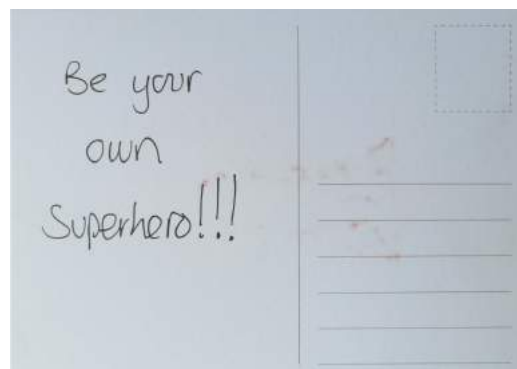 Be your
own
Superhero!!!